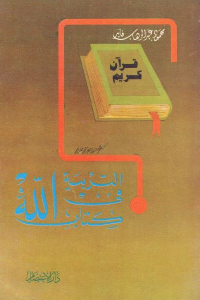 محمود عبد الوهاب فايد
قرآن
كريم
التربية
في
كتاب الله
دار الاعتصام